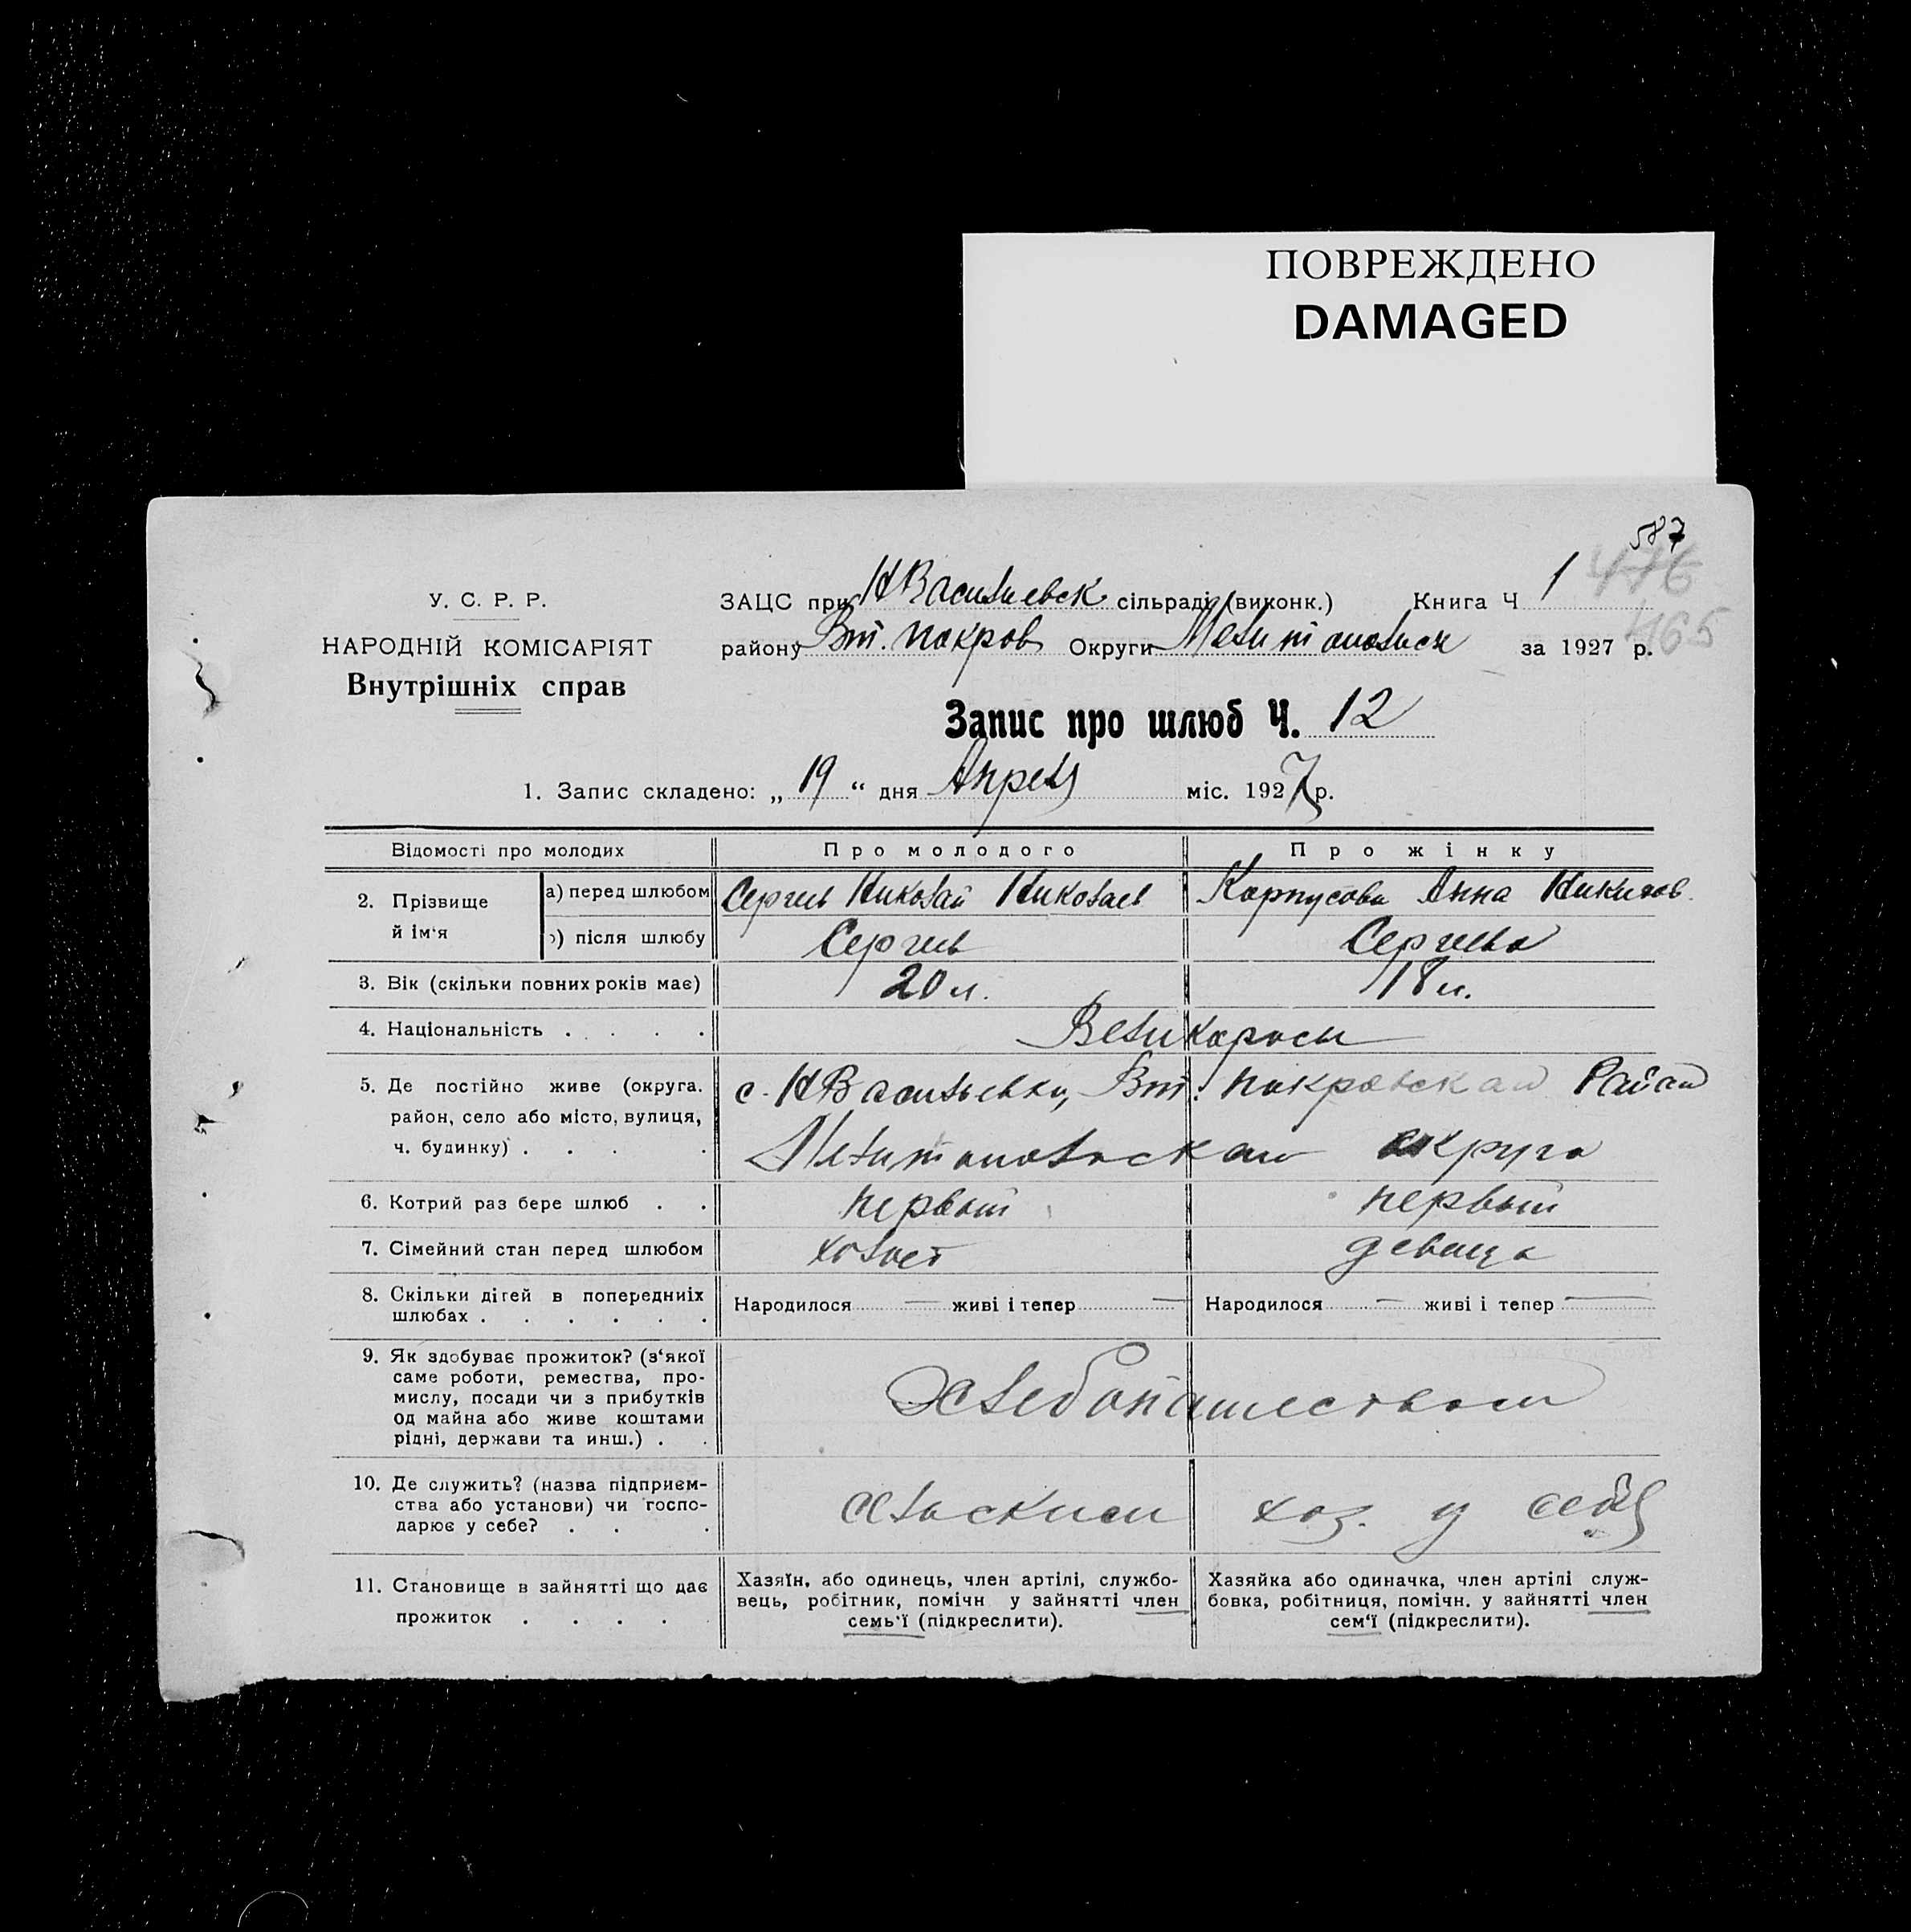 ПОВРЕЖДЕНО
DAMAGED
587
476
465
У. С. Р. Р.
НАРОДНІЙ КОМІСАРІЯТ
Внутрішніх справ
ЗАЦС при НВасильевск сільраді (виконк.) Книга Ч 1
району Вт. Покров Округи Мелитопольск за 1927 р.
Запис про шлюб Ч. 12
1. Запис складено: „ 19 “ дня Апреля міс. 1927 р.
Відомості про молодих Про молодого Про жінку
2. Прізвище й ім‘я
а) перед шлюбом Сергиев Николай Николаев Карпусова Анна
) після шлюбу Сергиев Сергиева
3. Вік (скільки повних років має) 20 л. 18 л.
4. Національність . . . . Великоросы
5. Де постійно живе (округа. с. НВасильевка, Вт. Покровского Район
район, село або місто, вулиця,
ч. будинку) . . . . Мелитопольского округа
6. Котрий раз бере шлюб . . первый первый
7. Сімейний стан перед шлюбом холост девица
8. Скільки дітей в попередниіх Народилося — живі і тепер — Народилося — живі і тепер —
шлюбах . . . . . .
9. Як здобуває прожиток? (з‘якої
саме роботи, ремества, про-
мислу, посади чи з прибутків Хлебопашеством
од майна або живе коштами
рідні, держави та инш.) . .
10. Де служить? (назва підприєм-
ства або установи) чи госпо- хоз. у себя
дарює у себе? . . .
11. Становище в зайнятті що дає
прожиток . . . .
Хазяїн, або одинець, член артілі, службо-
вець, робітник, помічн у зайнятті член
семь‘ї (підкреслити).
Хазяйка або одиначка, член артілі служ-
бовка, робітниця, помічн. у зайнятті член
сем‘ї (підкреслити).